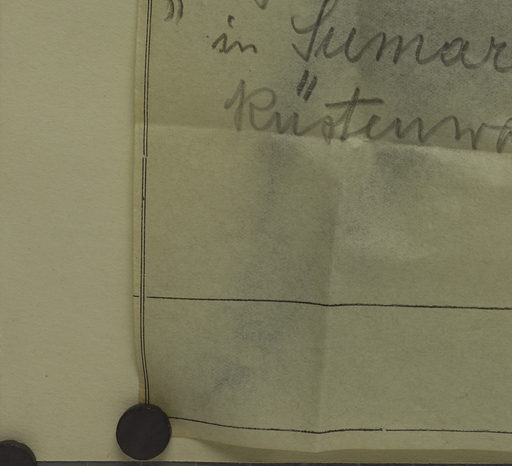 "
in Sumar
Küstenwa